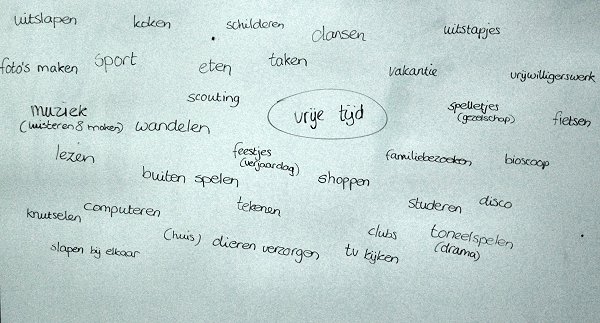 uitslapen koken schilderen dansen uitstapjes
foto's maken sport eten taken vakantie vrijwilligerswerk
muziek
(luisteren & maken)
wandelen
scouting
vrije tijd
spelletjes
(gezelschap)
fietsen
lezen
buiten spelen
feestjes
(verjaardag)
shoppen
familiebezoeken
bioscoop
knutselen
computeren
tekenen
studeren
disco
slapen bij elkaar
(huis) dieren verzorgen
clubs
tv kijken
toneelspelen
(drama)